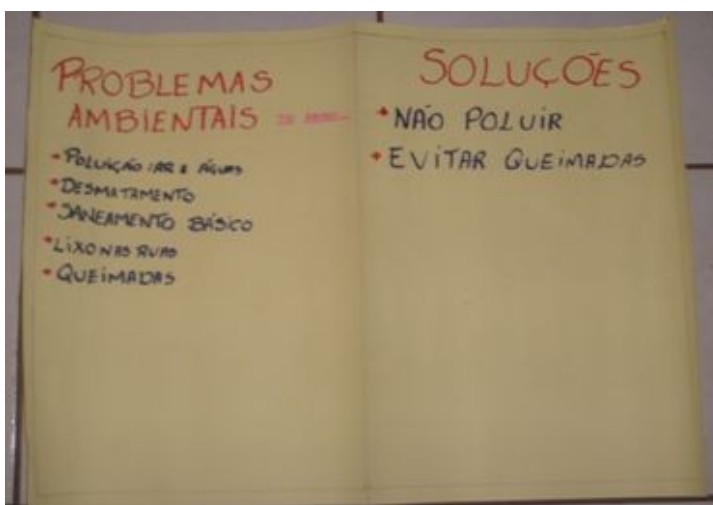 PROBLEMAS
AMBIENTAIS
• POLUIÇÃO: AR E ÁGUAS
• DESMATAMENTO
• SANEAMENTO BÁSICO
• LIXO NAS RUAS
• QUEIMADAS
SOLUÇÕES
• NÃO POLUIR
• EVITAR QUEIMADAS